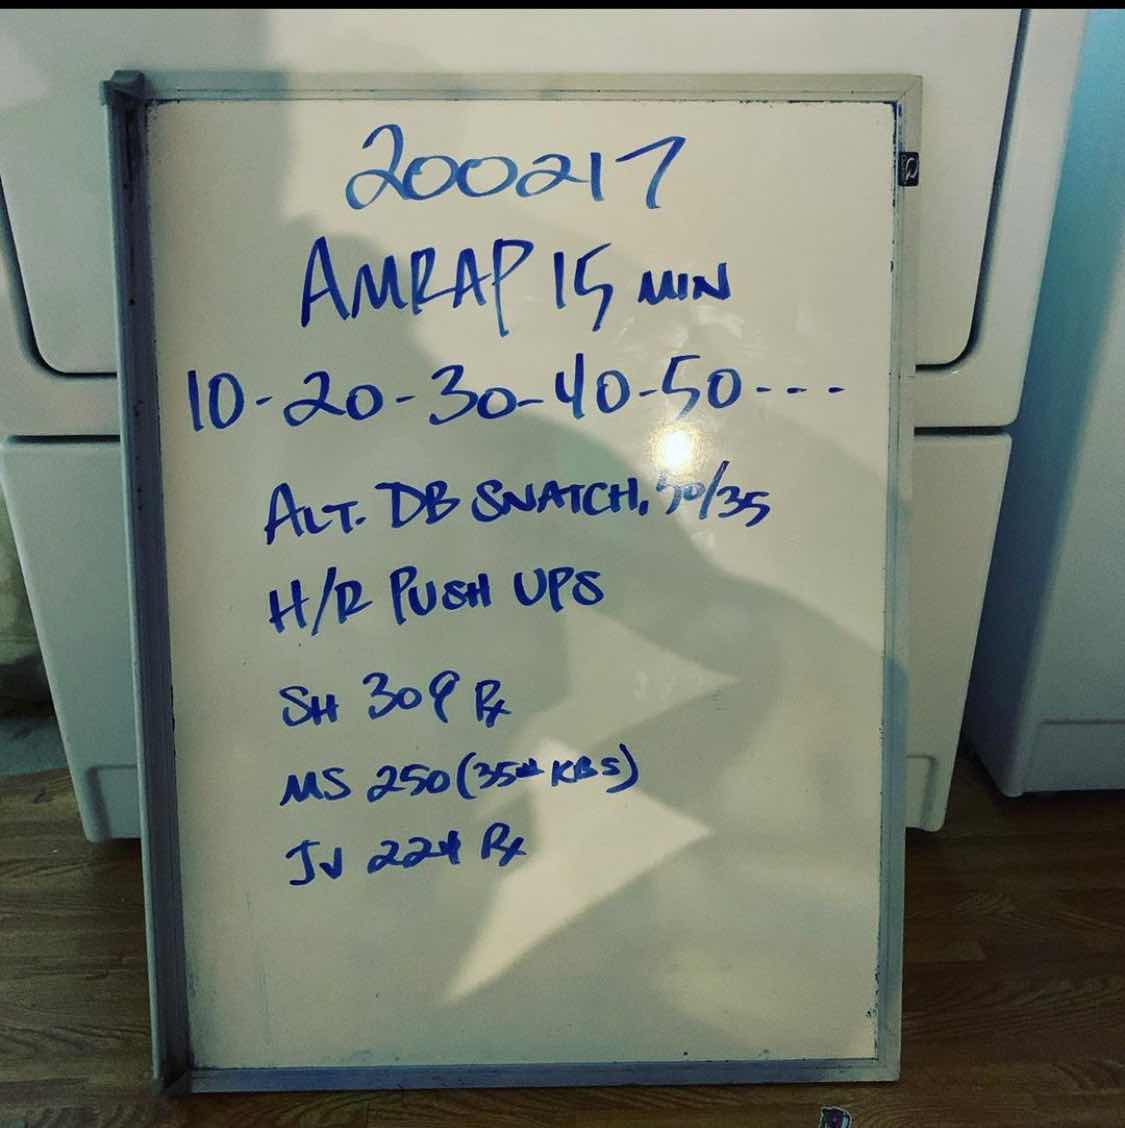 200217
AMRAP 15 MIN
10-20-30-40-50---
ALT. DB SNATCH, 50/35
H/R PUSH UPS
SH 309 Rx
MS 250 (35# KBS)
JV 224 Rx